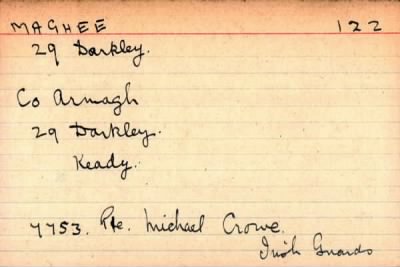 MAGHEE 122
29 Darkley.
Co Armagh
29 Darkley.
Keady.
7753. Pte. Michael Crowe.
Irish Guards